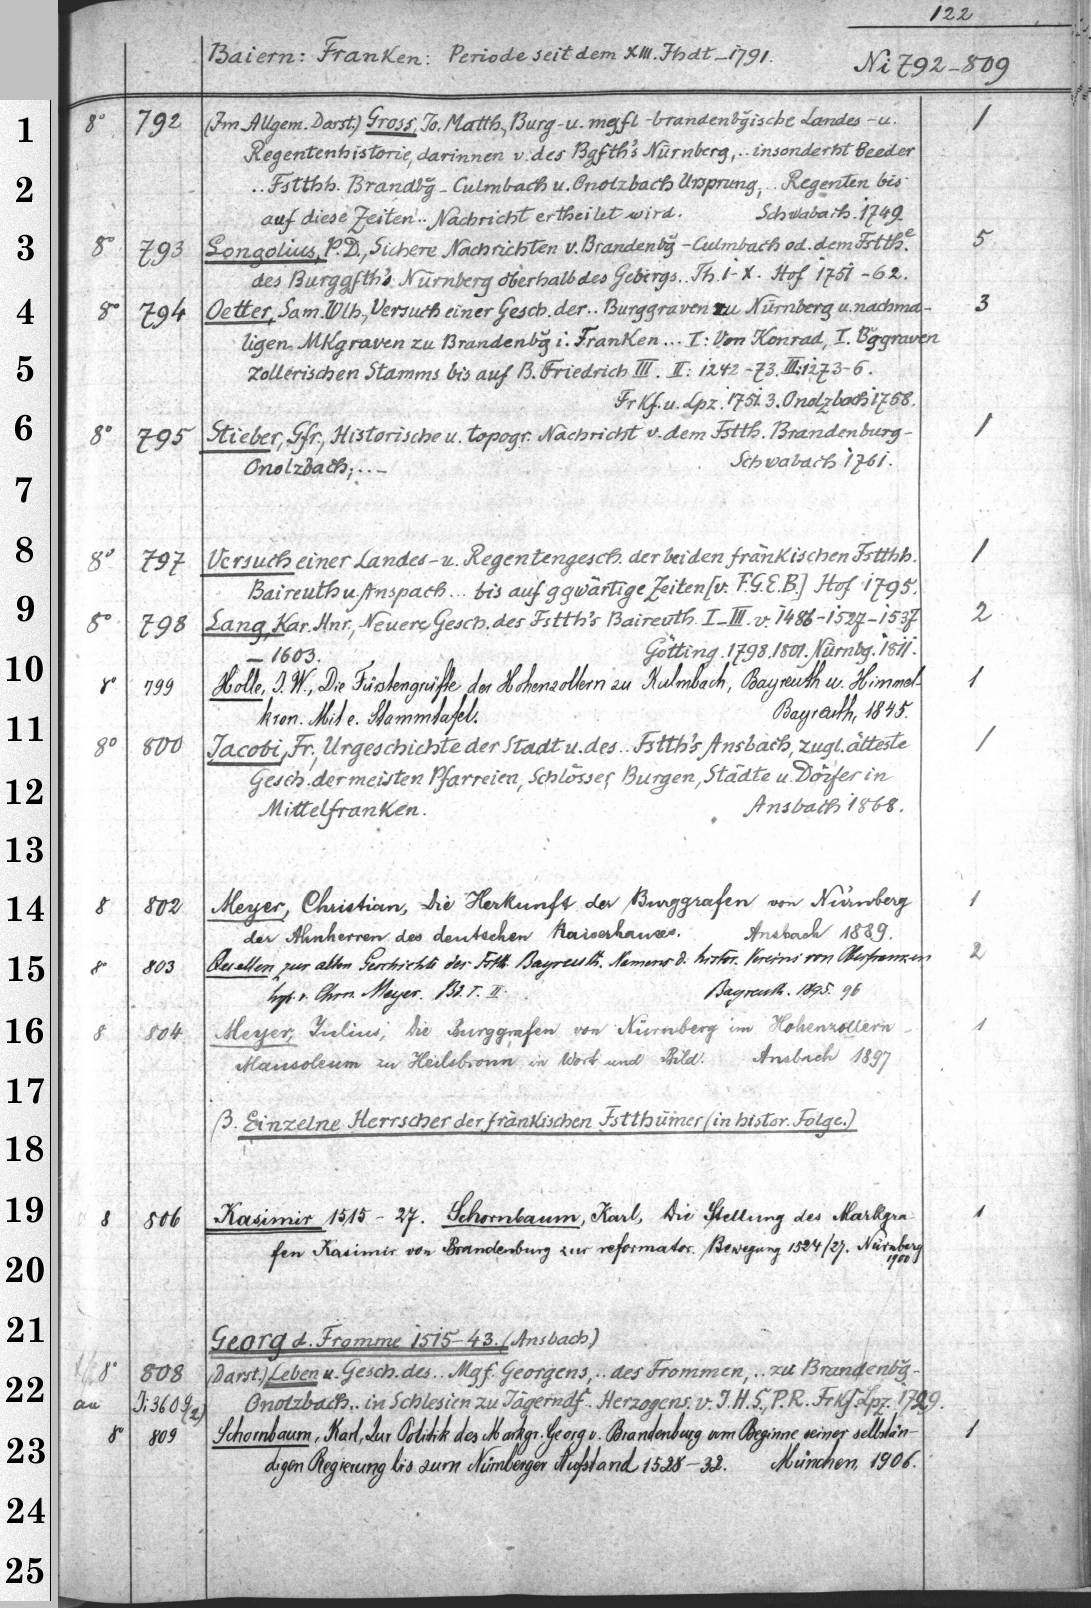 122
Baiern: Franken: Periode seit dem XIII. Jhdt–1791.
Ni 792–809
1
8° 792 (Im Allgem. Darst.) Gross, Jo. Matth., Burg- u. mgfl-brandenbğische Landes- u. 1
Regentenhistorie, darinnen v. des Bgfth's Nürnberg, .. insonderht Beeder
2
.. Fstthh. Brandbğ-Culmbach u. Onolzbach Ursprung, .. Regenten bis
auf diese Zeiten .. Nachricht ertheilet wird. Schwabach. 1749
3
8° 793 Longolius, P.D., Sichere Nachrichten v. Brandenbğ-Culmbach od. dem Fstthe 5
des Burggfth's Nürnberg oberhalb des Gebirgs.. Th. I-X. Hof 1751-62.
4
8° 794 Oetter, Sam. Wlh., Versuch einer Gesch. der .. Burggraven zu Nürnberg u. nachma- 3
ligen MKgraven zu Brandenbğ i. Franken ... I: Von Konrad, I. Bğgraven
5
zollerischen Stamms bis auf B. Friedrich III. II: 1242-73. III: 1273-6.
Frkf. u. Lpz. 1751.3. Onolzbach 1758.
6
8° 795 Stieber, Gfr., Historische u. topogr. Nachricht v. dem Fstth. Brandenburg- 1
Onolzbach; ..– Schwabach 1761.
7
8
8° 797 Versuch einer Landes- u. Regentengesch. der beiden fränkischen Fstthh. 1
Baireuth u. Anspach ... bis auf ggwärtige Zeiten [v. F.G.E.B.] Hof 1795.
9
8° 798 Lang, Kar. Hnr., Neuere Gesch. des Fstth's Baireuth. I–III. v. 1486–1527–1537 2
–1603. Götting. 1798. 1801. Nürnbg. 1811.
10
8° 799 Holle, J. W., Die Fürstengrüfte der Hohenzollern zu Kulmbach, Bayreuth u. Himmel- 1
kron. Mit e. Stammtafel. Bayreuth, 1845.
11
8° 800 Jacobi, Fr., Urgeschichte der Stadt u. des .. Fstth's Ansbach, zugl. älteste 1
Gesch. der meisten Pfarreien, Schlösser, Burgen, Städte u. Dörfer in
12
Mittelfranken. Ansbach 1868.
13
14
8 802 Meyer, Christian, Die Herkunft der Burggrafen von Nürnberg 1
der Ahnherren des deutschen Kaiserhauses. Ansbach 1889.
15
8° 803 Quellen zur alten Geschichte des Fstth. Bayreuth. Namens d. histor. Vereins von Oberfranken 2
hgb. v. Chrn. Meyer. Bd. I. II. Bayreuth. 1895. 96
16
8 804 Meyer, Julius, Die Burggrafen von Nürnberg im Hohenzollern- 1
Mausoleum zu Heilsbronn in Wort und Bild. Ansbach 1897
17
β. Einzelne Herrscher der fränkischen Fstthümer (in histor. Folge.)
18
19
8 806 Kasimir 1515–27. Schornbaum, Karl, Die Stellung des Markgra- 1
fen Kasimir von Brandenburg zur reformator. Bewegung 1524/27. Nürnberg
1900
20
21
Georg d. Fromme 1515–43. (Ansbach)
8° 808 (Darst.) Leben u. Gesch. des .. Mgf. Georgens, .. des Frommen, .. zu Brandenbğ-
22
an Ji 3609 (2) Onolzbach .. in Schlesien zu Jägerndf. Herzogens. v. J.H.S., P.R. Frkf. Lpz. 1729.
8° 809 Schornbaum, Karl, Zur Politik des Markgr. Georg v. Brandenburg vom Beginne seiner selbstän- 1
23
digen Regierung bis zum Nürnberger Anstand 1528–32. München, 1906.
24
25